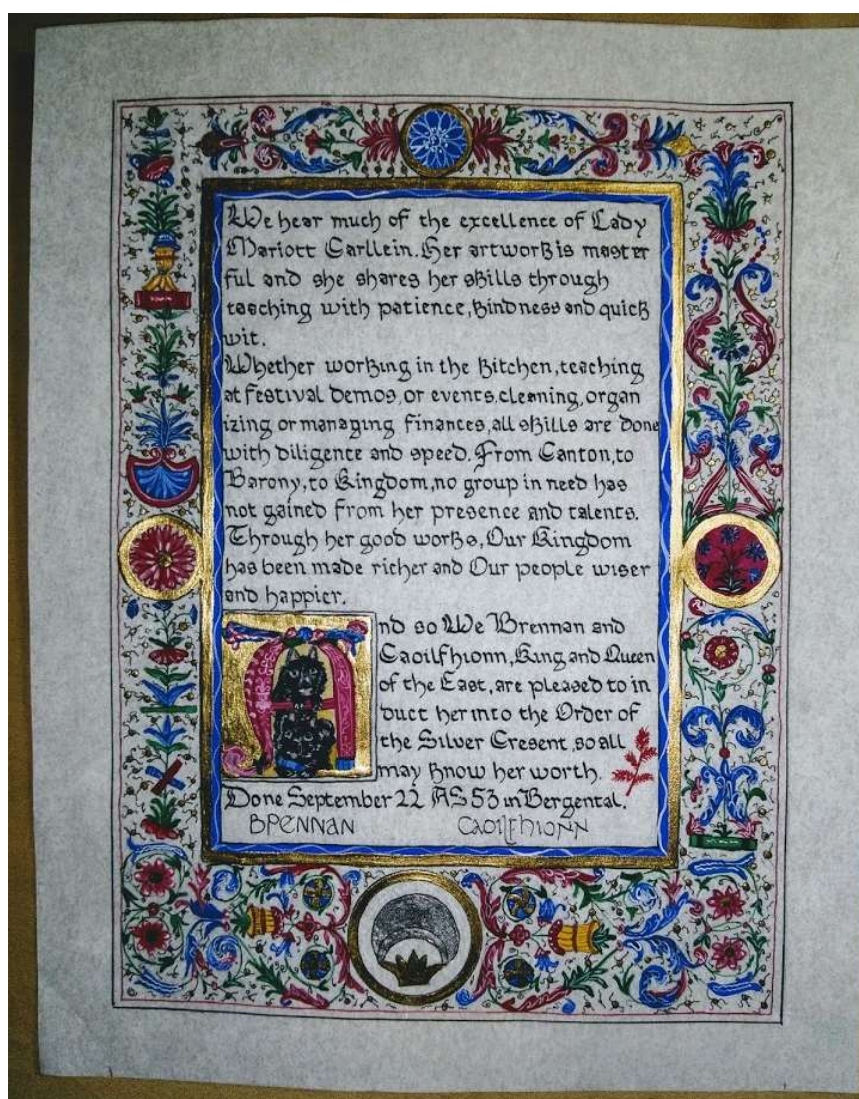 We hear much of the excellence of Lady
Mariott Carllein. Her artwork is master
ful and she shares her skills through
teaching with patience, kindness and quick
wit.
Whether working in the kitchen, teaching
at festival demos, or events, cleaning, organ
izing or managing finances, all skills are done
with diligence and speed. From Canton, to
Barony, to Kingdom, no group in need has
not gained from her presence and talents.
Through her good works, Our Kingdom
has been made richer and Our people wiser
and happier.
And so We Brennan and
Caoilfhionn, King and Queen
of the East, are pleased to in
duct her into the Order of
the Silver Cresent, so all
may know her worth.
Done September 22 AS 53 in Bergental.
BRENNAN CAOILFHIONN